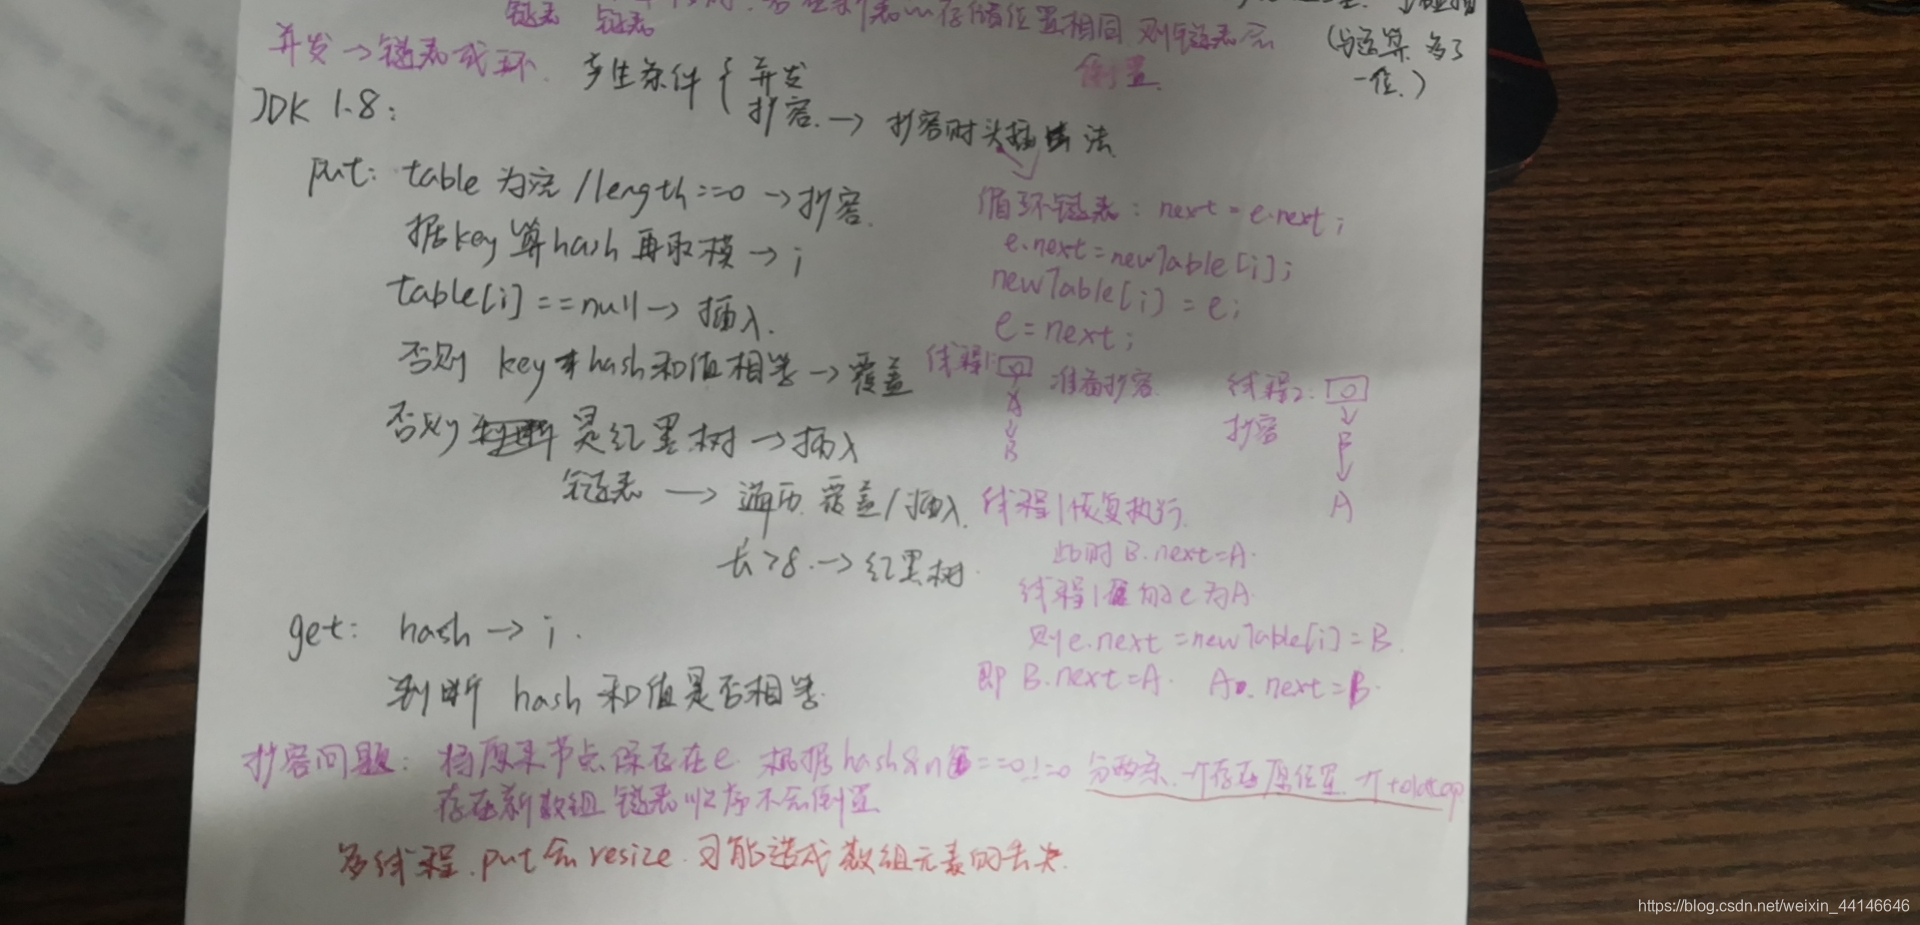 链表 链表 存储位置相同 则链表会
倒置.
(与运算.多了
一位.)
并发→链表成环. 产生条件{并发
扩容.→ 扩容时头插法.
JDK 1.8:
put: table为空/length==0→扩容.
据key算hash再取模→i
table[i]==null→插入.
否则 key hash和值相等→覆盖
否则 是红黑树→插入
链表→遍历.覆盖/插入.
长>8.→红黑树.
get: hash→i.
判断 hash和值是否相等.
循环链表: next=e.next;
e.next=newTable[i];
newTable[i]=e;
e=next;
线程1: 0 准备扩容.
A
B
线程2: 0
扩容
B
A
线程1恢复执行.
此时B.next=A.
线程1 e为A.
则e.next=newTable[i]=B.
即B.next=A. A.next=B.
扩容问题: 将原来节点保存在e.根据hash&n ==0,!=0 分两条.一个存在原位置.一个+oldcap
存在新数组 链表顺序不会倒置
多线程.put会resize.可能造成数组元素的丢失.
https://blog.csdn.net/weixin_44146646